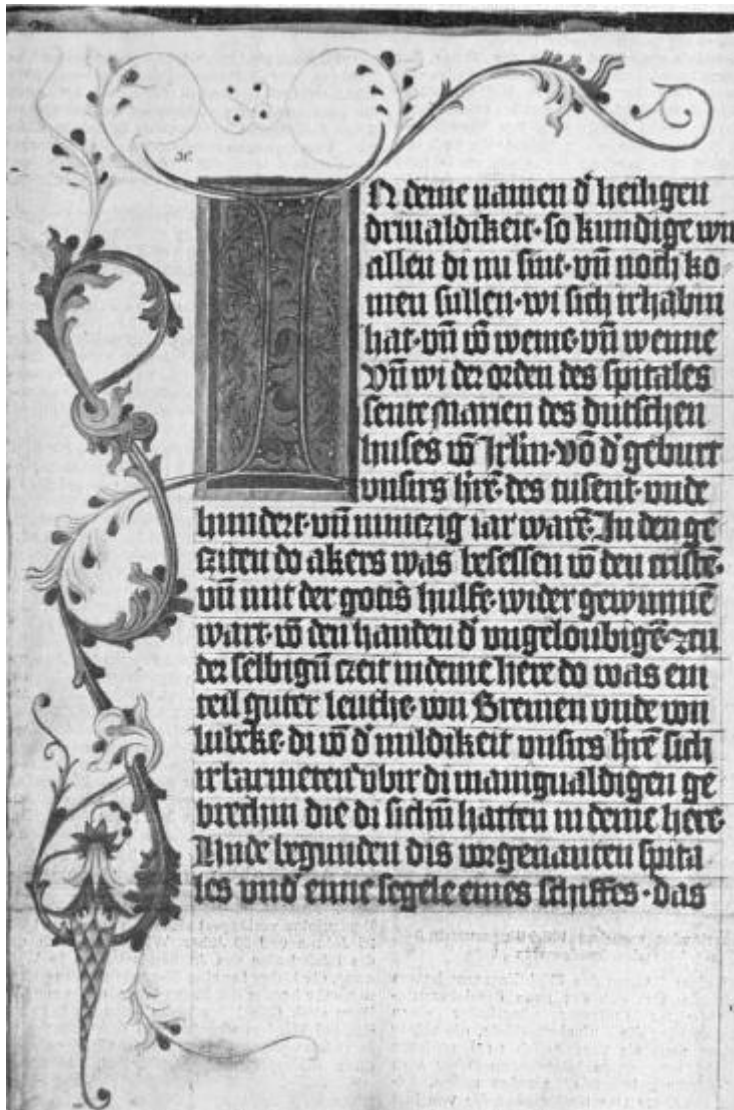 IN deme namen d' heiligen
drivaldikeit· so kundige wir
allen di nu sint· vn̄ noch ko
men sullen· wi sich irhabin
hat· vn̄ vō weme· vn̄ wenne
Vn̄ wi der orden des spitales
sente Marien des dutschen
huses vō Jrlm̄· vō d' geburt
vnsirs h're· des tusent· vnde
hundert· vn̄ nuinczig iar warē· In den ge
cziten do akers was besessen vō den cristē·
vn̄ mit der gotis hulfe· wider gewunnē
wart· vō den handen d' vngeloubigē· zcu
der selbign̄ czeit in deme here do was ein
teil guter leuthe· von Bremen vnde von
lubeke· di vō d' mildikeit vnsirs h'rē sich
irbarmeten vbir di manigualdigen ge
brechin die di sichn̄ hatten in deme here·
Vnde begunden dis vorgenanten spita
les vnd' eime segele eines schiffes· das